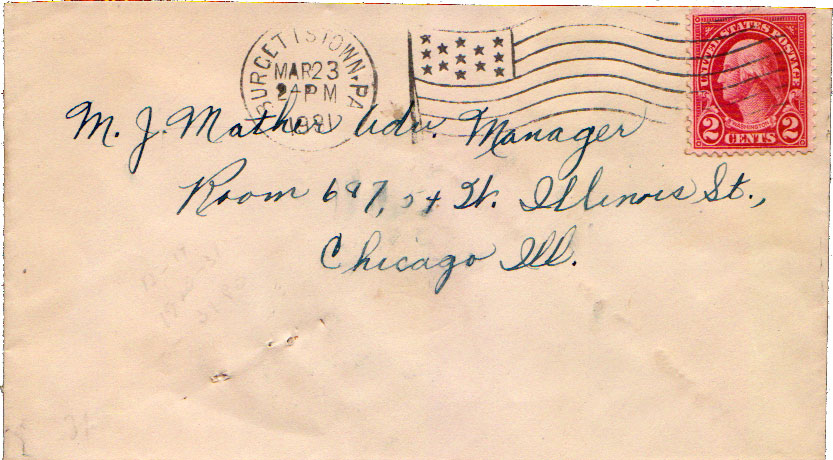 BURGETTSTOWN, PA
MAR 23
2 - PM
UNITED STATES POSTAGE
WASHINGTON
2 CENTS 2
M. J. Mathers Adv. Manager
Room 687, 54 W. Illinois St.,
Chicago Ill.